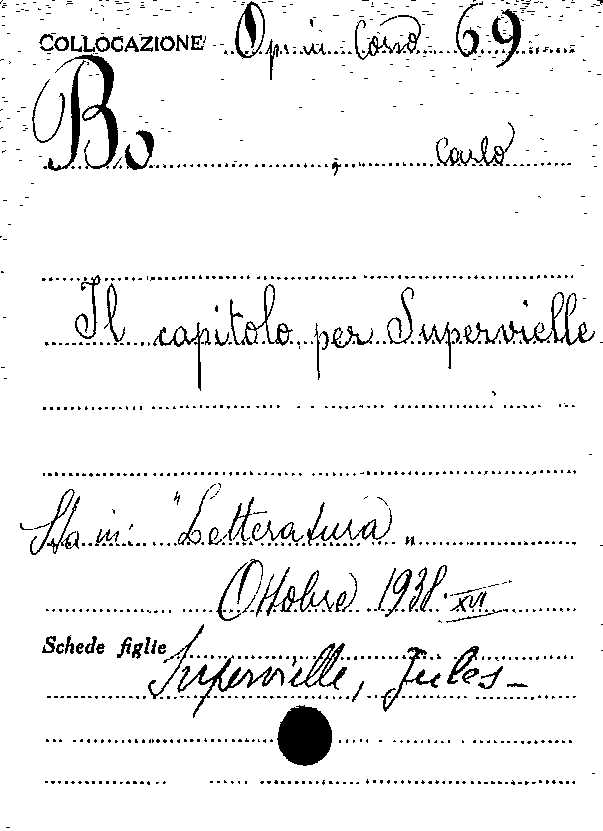 COLLOCAZIONE Op. in Corso 69
Bo, Carlo
Il capitolo per Supervielle
Sta in: "Letteratura"
Ottobre 1938. XVI
Schede figlie
Supervielle, Jules -